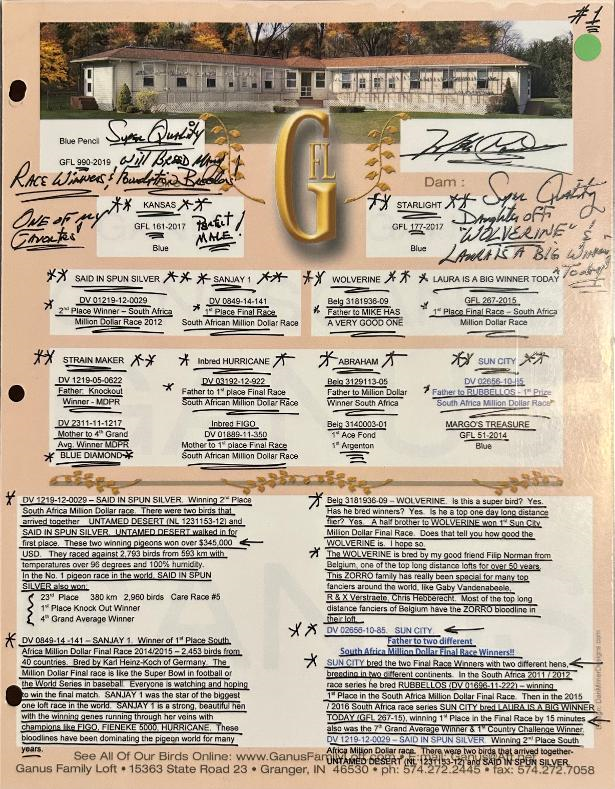 #1
Blue Pencil Super Quality
GFL 990-2019 Will Breed Many
Race Winners! Foundation Breeders!
GFL
Dam :
One of my Favorites!
** KANSAS **
GFL 161-2017
Blue
Perfect MALE!
** STARLIGHT **
GFL 177-2017
Blue
Super Quality
Daughter off
"WOLVERINE" &
LAURA IS A BIG WINNER
Today
** SAID IN SPUN SILVER **
DV 01219-12-0029
2nd Place Winner – South Africa
Million Dollar Race 2012
SANJAY 1 **
DV 0849-14-141
1st Place Final Race
South African Million Dollar Race
WOLVERINE **
Belg 3181936-09
Father to MIKE HAS
A VERY GOOD ONE
* LAURA IS A BIG WINNER TODAY
GFL 267-2015
1st Place Final Race – South Africa
Million Dollar Race
** STRAIN MAKER **
DV 1219-05-0622
Father: Knockout
Winner - MDPR
DV 2311-11-1217
Mother to 4th Grand
Avg. Winner MDPR
* BLUE DIAMOND *
* Inbred HURRICANE *
DV 03192-12-922
Father to 1st place Final Race
South African Million Dollar Race
Inbred FIGO
DV 01889-11-350
Mother to 1st place Final Race
South African Million Dollar Race
* ABRAHAM *
Belg 3129113-05
Father to Million Dollar
Winner South Africa
Belg 3140003-01
1st Ace Fond
1st Argenton
** SUN CITY **
DV 02656-10-85
Father to RUBBELLOS - 1st Prize
South Africa Million Dollar Race
MARGO'S TREASURE
GFL 51-2014
Blue
* DV 1219-12-0029 – SAID IN SPUN SILVER. Winning 2nd Place
South Africa Million Dollar race. There were two birds that
arrived together UNTAMED DESERT (NL 1231153-12) and
SAID IN SPUN SILVER. UNTAMED DESERT walked in for
first place. These two winning pigeons won over $345,000
USD. They raced against 2,793 birds from 593 km with
temperatures over 96 degrees and 100% humidity.
In the No. 1 pigeon race in the world, SAID IN SPUN
SILVER also won:
23rd Place 380 km 2,960 birds Care Race #5
1st Place Knock Out Winner
4th Grand Average Winner
* DV 0849-14 -141 – SANJAY 1. Winner of 1st Place South
Africa Million Dollar Final Race 2014/2015 – 2,453 birds from
40 countries. Bred by Karl Heinz-Koch of Germany. The
Million Dollar Final race is like the Super Bowl in football or
the World Series in baseball. Everyone is watching and hoping
to win the final match. SANJAY 1 was the star of the biggest
one loft race in the world. SANJAY 1 is a strong, beautiful hen
with the winning genes running through her veins with
champions like FIGO, FIENEKE 5000, HURRICANE. These
bloodlines have been dominating the pigeon world for many
years.
* Belg 3181936-09 – WOLVERINE. Is this a super bird? Yes.
Has he bred winners? Yes. Is he a top one day long distance
flier? Yes. A half brother to WOLVERINE won 1st Sun City
Million Dollar Race. Does that tell you how good the
WOLVERINE is. I hope so.
* The WOLVERINE is bred by my good friend Filip Norman from
Belgium, one of the top long distance lofts for over 50 years.
This ZORRO family has really been special for many top
fanciers around the world, like Gaby Vandenabeele,
R & X Verstraete, Chris Hebberecht. Most of the top long
distance fanciers of Belgium have the ZORRO bloodline in
their loft.
** DV 02656-10-85. SUN CITY
Father to two different
South Africa Million Dollar Race Winners!!
* SUN CITY bred the two Final Race Winners with two different hens,
breeding in two different continents. In the South Africa 2011 / 2012
race series he bred RUBBELLOS (DV 01696-11-222) – winning
1st Place in the South Africa Million Dollar Final Race. Then in the 2015
/ 2016 South Africa race series SUN CITY bred LAURA IS A BIG WINNER
TODAY (GFL 267-15), winning 1st Place in the Final Race by 15 minutes
also was the 7th Grand Average Winner & 1st Country Challenge Winner.
DV 1219-12-0029 – SAID IN SPUN SILVER. Winning 2nd Place South
Africa Million Dollar race. There were two birds that arrived together-
UNTAMED DESERT (NL 1231153-12) and SAID IN SPUN SILVER
See All Of Our Birds Online: www.GanusFamilyLoft.com •
Ganus Family Loft • 15363 State Road 23 • Granger, IN 46530 • ph: 574.272.2445 • fax: 574.272.7058